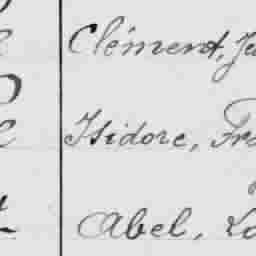 Clément, Je
Isidore, Fra
Abel, Lo